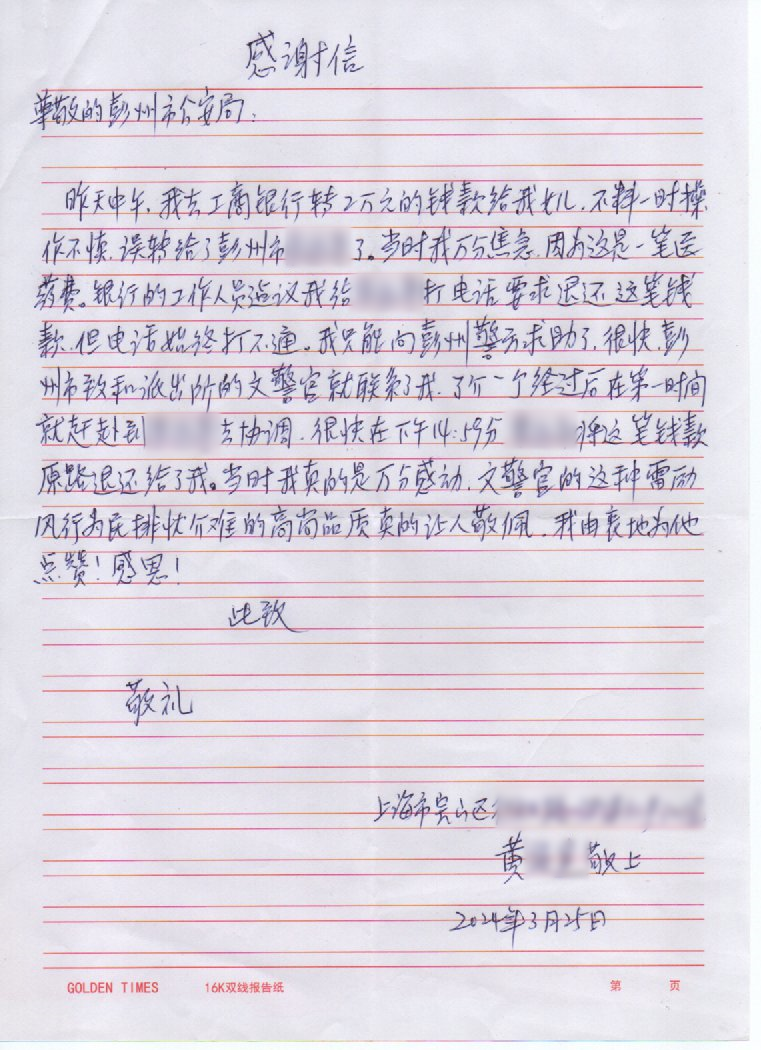 感谢信
尊敬的彭州市公安局：
昨天中午，我去工商银行转2万元的钱款给我女儿，不料一时操
作不慎，误转给了彭州市 了。当时我万分焦急，因为这是一笔医
药费。银行的工作人员建议我给 打电话要求退还这笔钱
款，但电话始终打不通。我只能向彭州警方求助了，很快，彭
州市致和派出所的文警官就联系了我，了解了经过后在第一时间
就赶赴到 去协调，很快在下午14:59分 将这笔钱款
原路退还给了我。当时我真的是万分感动，文警官的这种雷励
风行为民排忧介难的高尚品质真的让人敬佩，我由衷地为他
点赞！感恩！
此致
敬礼
上海市宝山区
黄 敬上
2024年3月25日
GOLDEN TIMES 16K双线报告纸 第 页